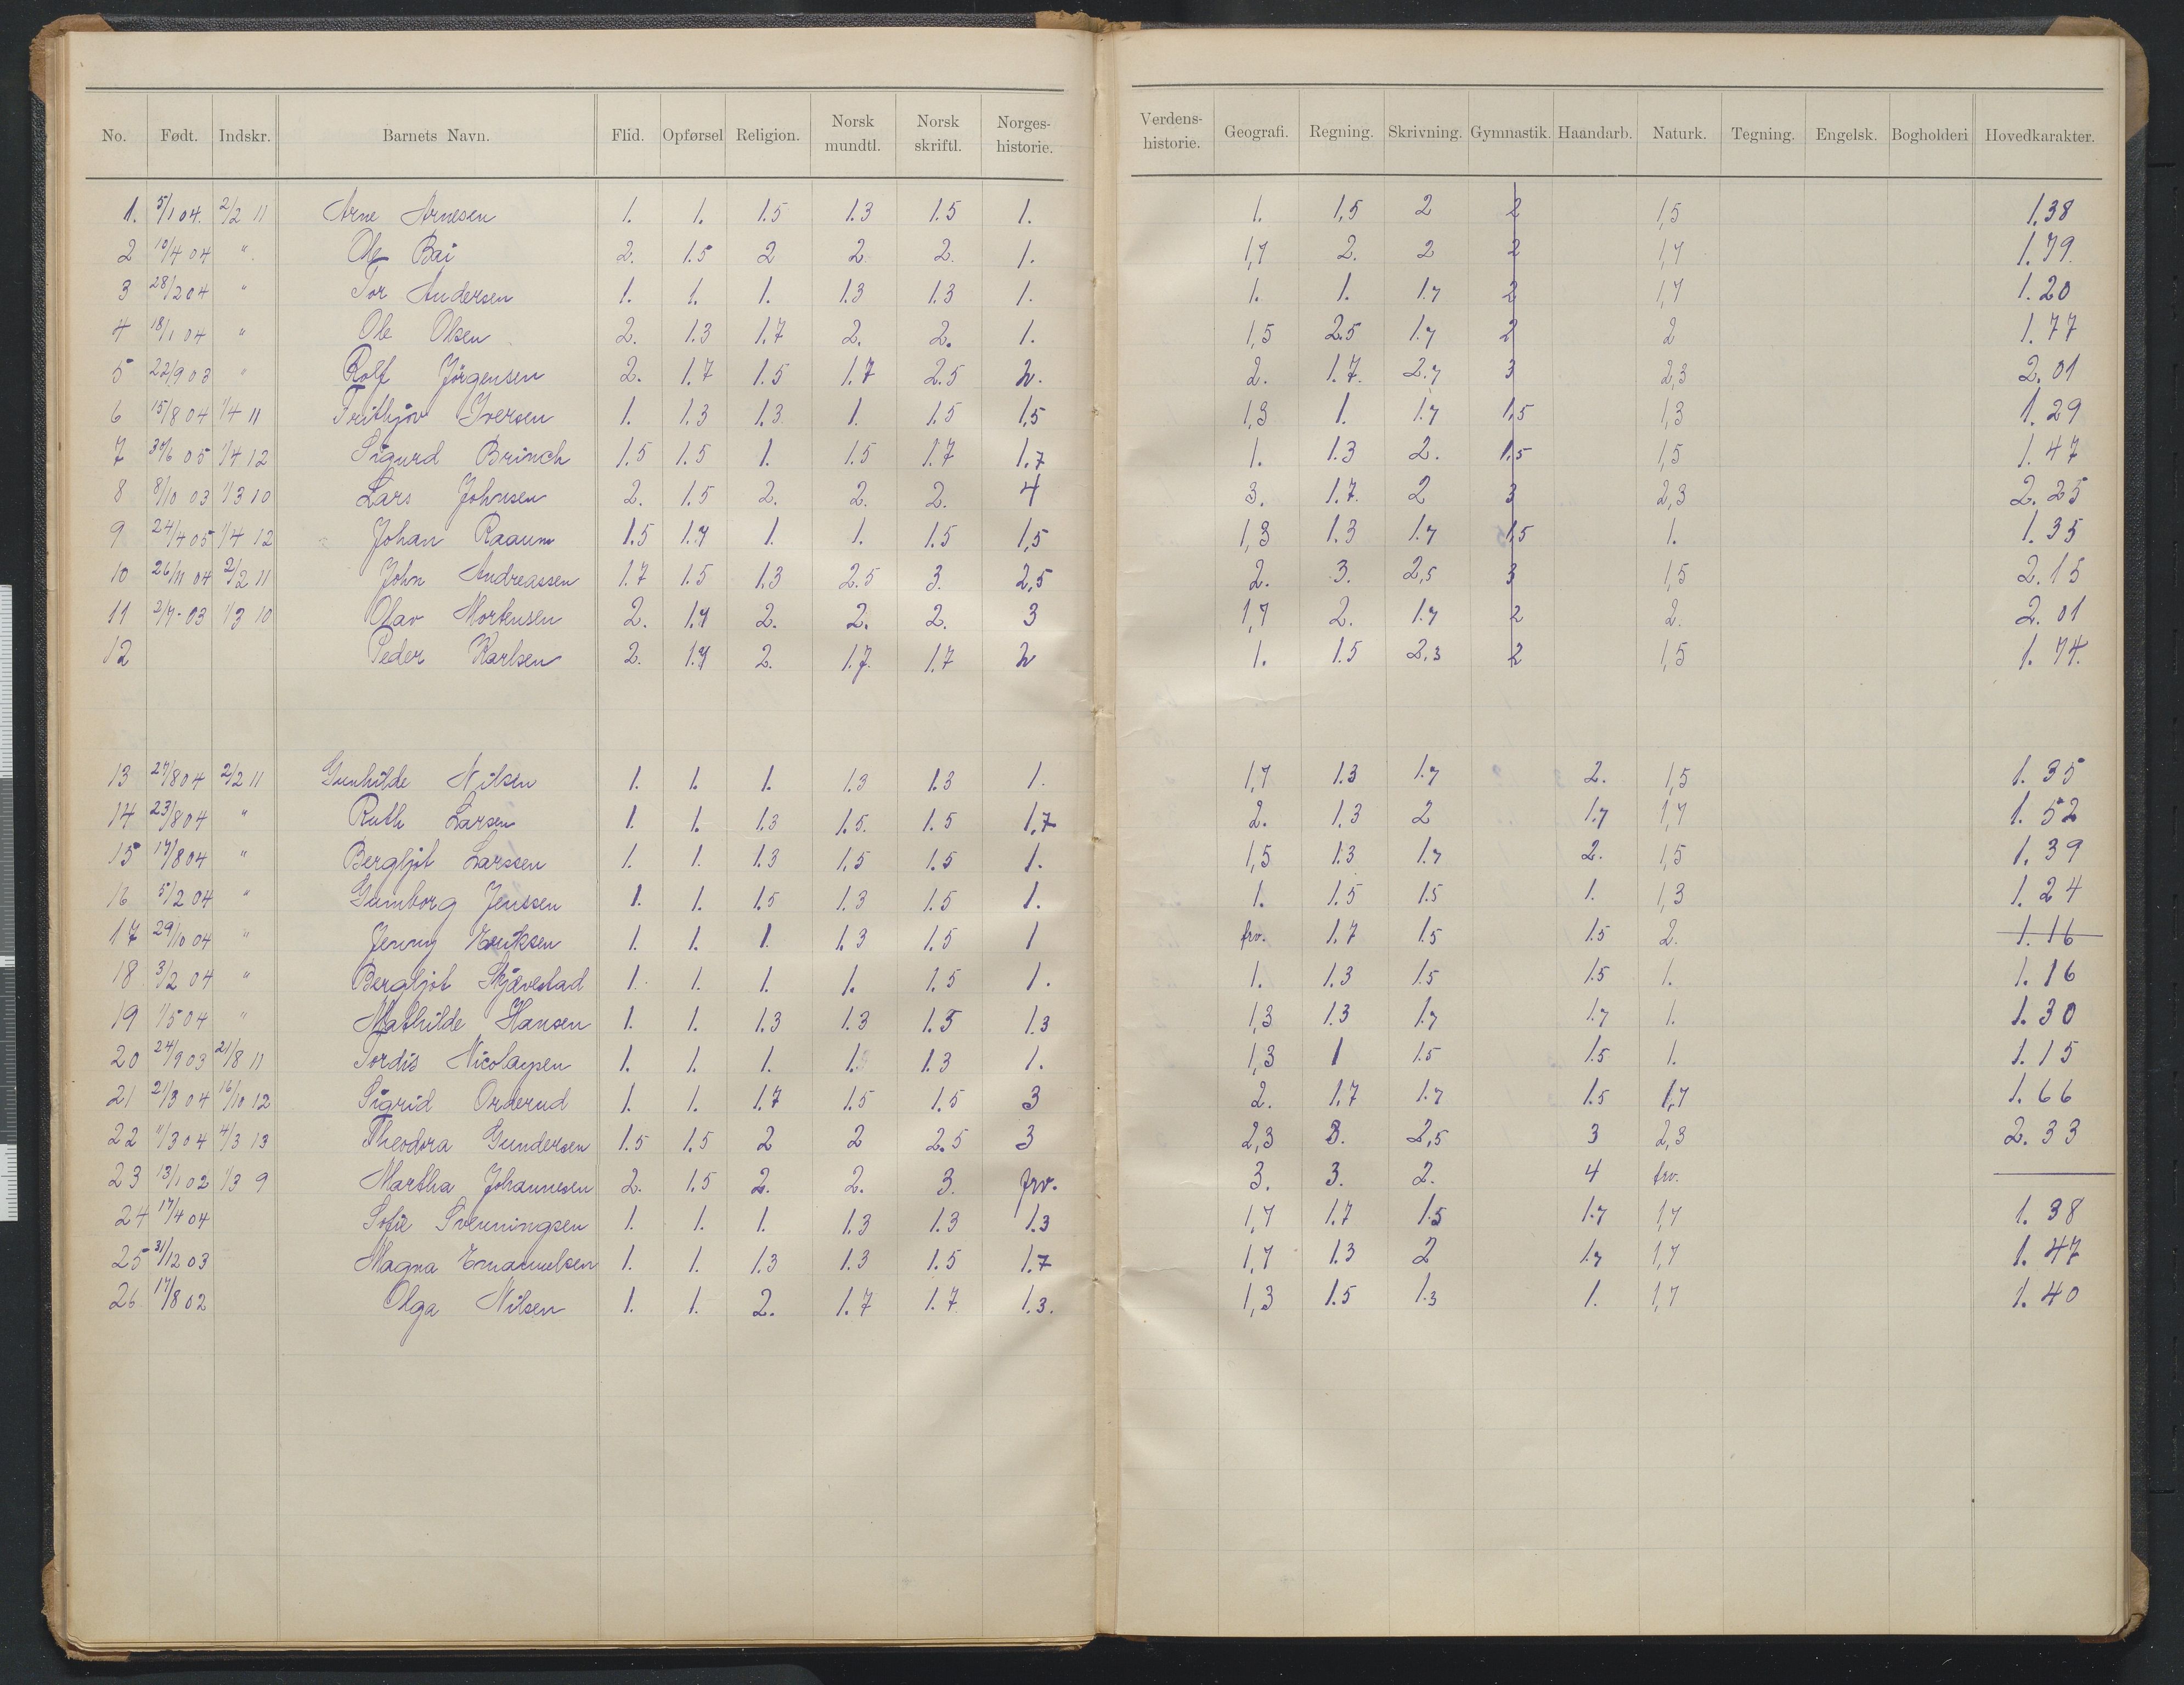 No. Født. Indskr. Barnets Navn. Flid. Opførsel Religion. Norsk mundtl. Norsk skriftl. Norges-historie. Verdens-historie. Geografi. Regning. Skrivning. Gymnastik. Haandarb. Naturk. Tegning. Engelsk. Bogholderi Hovedkarakter.
1. 5/1 04. 2/2 11 Arne Arnesen 1. 1. 1.5 1.3 1.5 1. 1. 1,5 2 2 1,5 1.38
2 10/4 04 " Ole Bai 2. 1.5 2 2 2. 1. 1,7 2. 2 2 1,7 1.79.
3 28/2 04 " Tor Andersen 1. 1. 1. 1.3 1.3 1. 1. 1. 1.7 2 1,7 1.20
4 18/1 04 " Ole Olsen 2. 1.3 1.7 2. 2. 1. 1,5 2.5 1.7 2 2 1.77
5 22/9 03 " Rolf Jörgensen 2. 1.7 1.5 1.7 2.5 2. 2. 1.7. 2.7 3 2,3 2.01
6 15/8 04 1/4 11 Frithjov Iversen 1. 1.3 1.3 1. 1.5 1,5 1,3 1. 1.7 1,5 1,3 1.29
7 30/6 05 1/4 12 Sigurd Brinch 1.5 1.5 1. 1.5 1.7 1,7 1. 1.3 2. 1,5 1,5 1.47
8 8/10 03 1/3 10 Lars Johnsen 2. 1.5 2. 2. 2. 4 3. 1.7. 2 3 2,3 2.25
9 24/4 05 1/4 12 Johan Raaum 1.5 1.7 1. 1. 1.5 1,5 1,3 1.3 1.7 1,5 1. 1.35
10 26/11 04 2/2 11 John Andreassen 1.7 1.5 1.3 2.5 3. 2,5 2. 3. 2,5 3 1,5 2.15
11 2/7-03 1/3 10 Olav Mortensen 2. 1.7 2. 2. 2. 3 1,7 2. 1.7 2 2. 2.01
12 Peder Karlsen 2. 1.7 2. 1.7. 1.7 2 1. 1.5 2,3 2 1,5 1.74.
13 27/8 04 2/2 11 Gunhilde Nilsen 1. 1. 1. 1.3 1.3 1. 1,7 1.3 1.7 2. 1,5 1.35
14 23/8 04 " Ruth Larsen 1. 1. 1.3 1.5. 1.5 1,7 2. 1.3 2 1.7 1,7 1.52
15 17/8 04 " Bergljot Larssen 1. 1. 1.3 1.5 1.5 1. 1,5 1.3 1.7 2. 1,5 1.39
16 5/2 04 " Gumborg Jenssen 1. 1. 1.5 1.3 1.5 1. 1. 1.5 1.5 1. 1,3 1.24
17 29/10 04 " Jenny Eriksen 1. 1. 1. 1.3 1.5 1 frv. 1.7 1.5 1.5 2. 1.16
18 3/2 04 " Bergljot Skjævestad 1. 1. 1. 1. 1.5 1. 1. 1.3 1.5 1.5 1. 1.16
19 1/5 04 " Mathilde Hansen 1. 1. 1.3 1.3 1.5 1.3 1,3 1.3 1.7 1.7 1. 1.30
20 24/9 03 21/8 11 Tordis Nicolaysen 1. 1. 1. 1. 1.3 1. 1,3 1 1.5 1.5 1. 1.15
21 21/3 04 16/10 12 Sigrid Orderud 1. 1. 1.7 1.5 1.5 3 2. 1.7 1.7 1.5 1,7 1.66
22 11/3 04 4/3 13 Theodora Gundersen 1.5 1.5 2 2 2.5 3 2,3 3. 2,5 3 2,3 2.33
23 13/1 02 1/3 9 Martha Johannesen 2. 1.5 2. 2. 3. frv. 3. 3. 2. 4 frv.
24 17/4 04 Sofie Svenningsen 1. 1. 1. 1.3 1.3 1.3 1,7 1.7 1.5 1.7 1,7 1.38
25 31/12 03 Magna Emanuelsen 1. 1. 1.3 1.3 1.5 1.7 1,7 1.3 2 1.7 1,7 1.47
26. 17/8 02 Olga Nilsen 1. 1. 2. 1.7 1.7 1.3. 1,3 1.5 1.3 1. 1,7 1.40